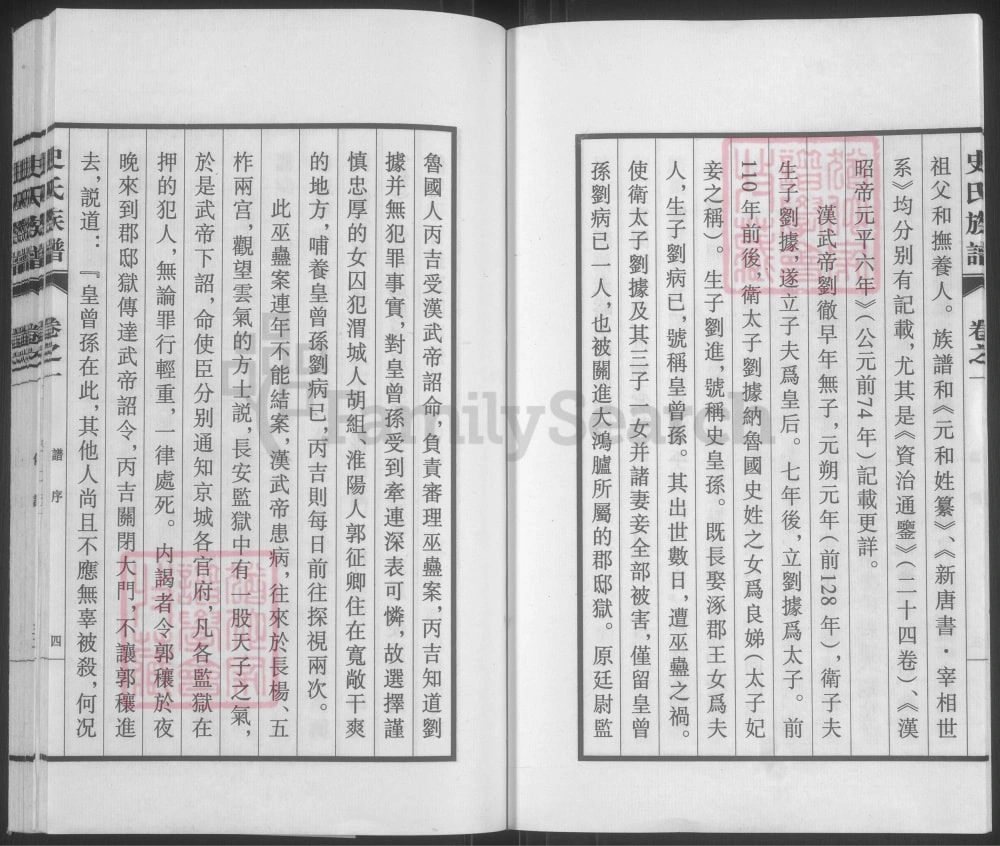 史氏族譜
卷之一
祖父和撫養人。族譜和《元和姓纂》、《新唐書·宰相世
系》均分別有記載，尤其是《資治通鑒》（二十四卷）、《漢
昭帝元平六年》（公元前74年）記載更詳。
漢武帝劉徹早年無子，元朔元年（前128年），衛子夫
生子劉據，遂立子夫爲皇后。七年後，立劉據爲太子。前
110年前後，衛太子劉據納魯國史姓之女爲良娣（太子妃
妾之稱）。生子劉進，號稱史皇孫。既長娶涿郡王女爲夫
人，生子劉病已，號稱皇曾孫。其出世數日，遭巫蠱之禍。
使衛太子劉據及其三子一女并諸妻妾全部被害，僅留皇曾
孫劉病已一人，也被關進大鴻臚所屬的郡邸獄。原廷尉監
魯國人丙吉受漢武帝詔命，負責審理巫蠱案，丙吉知道劉
據并無犯罪事實，對皇曾孫受到牽連深表可憐，故選擇謹
慎忠厚的女囚犯渭城人胡組、淮陽人郭征卿住在寬敞干爽
的地方，哺養皇曾孫劉病已，丙吉則每日前往探視兩次。
此巫蠱案連年不能結案，漢武帝患病，往來於長楊、五
柞兩宫，觀望雲氣的方士説，長安監獄中有一股天子之氣，
於是武帝下詔，命使臣分別通知京城各官府，凡各監獄在
押的犯人，無論罪行輕重，一律處死。内謁者令郭穰於夜
晚來到郡邸獄傳達武帝詔令，丙吉關閉大門，不讓郭穰進
去，説道：『皇曾孫在此，其他人尚且不應無辜被殺，何况
史氏族譜
卷之一
譜序
四
FamilySearch